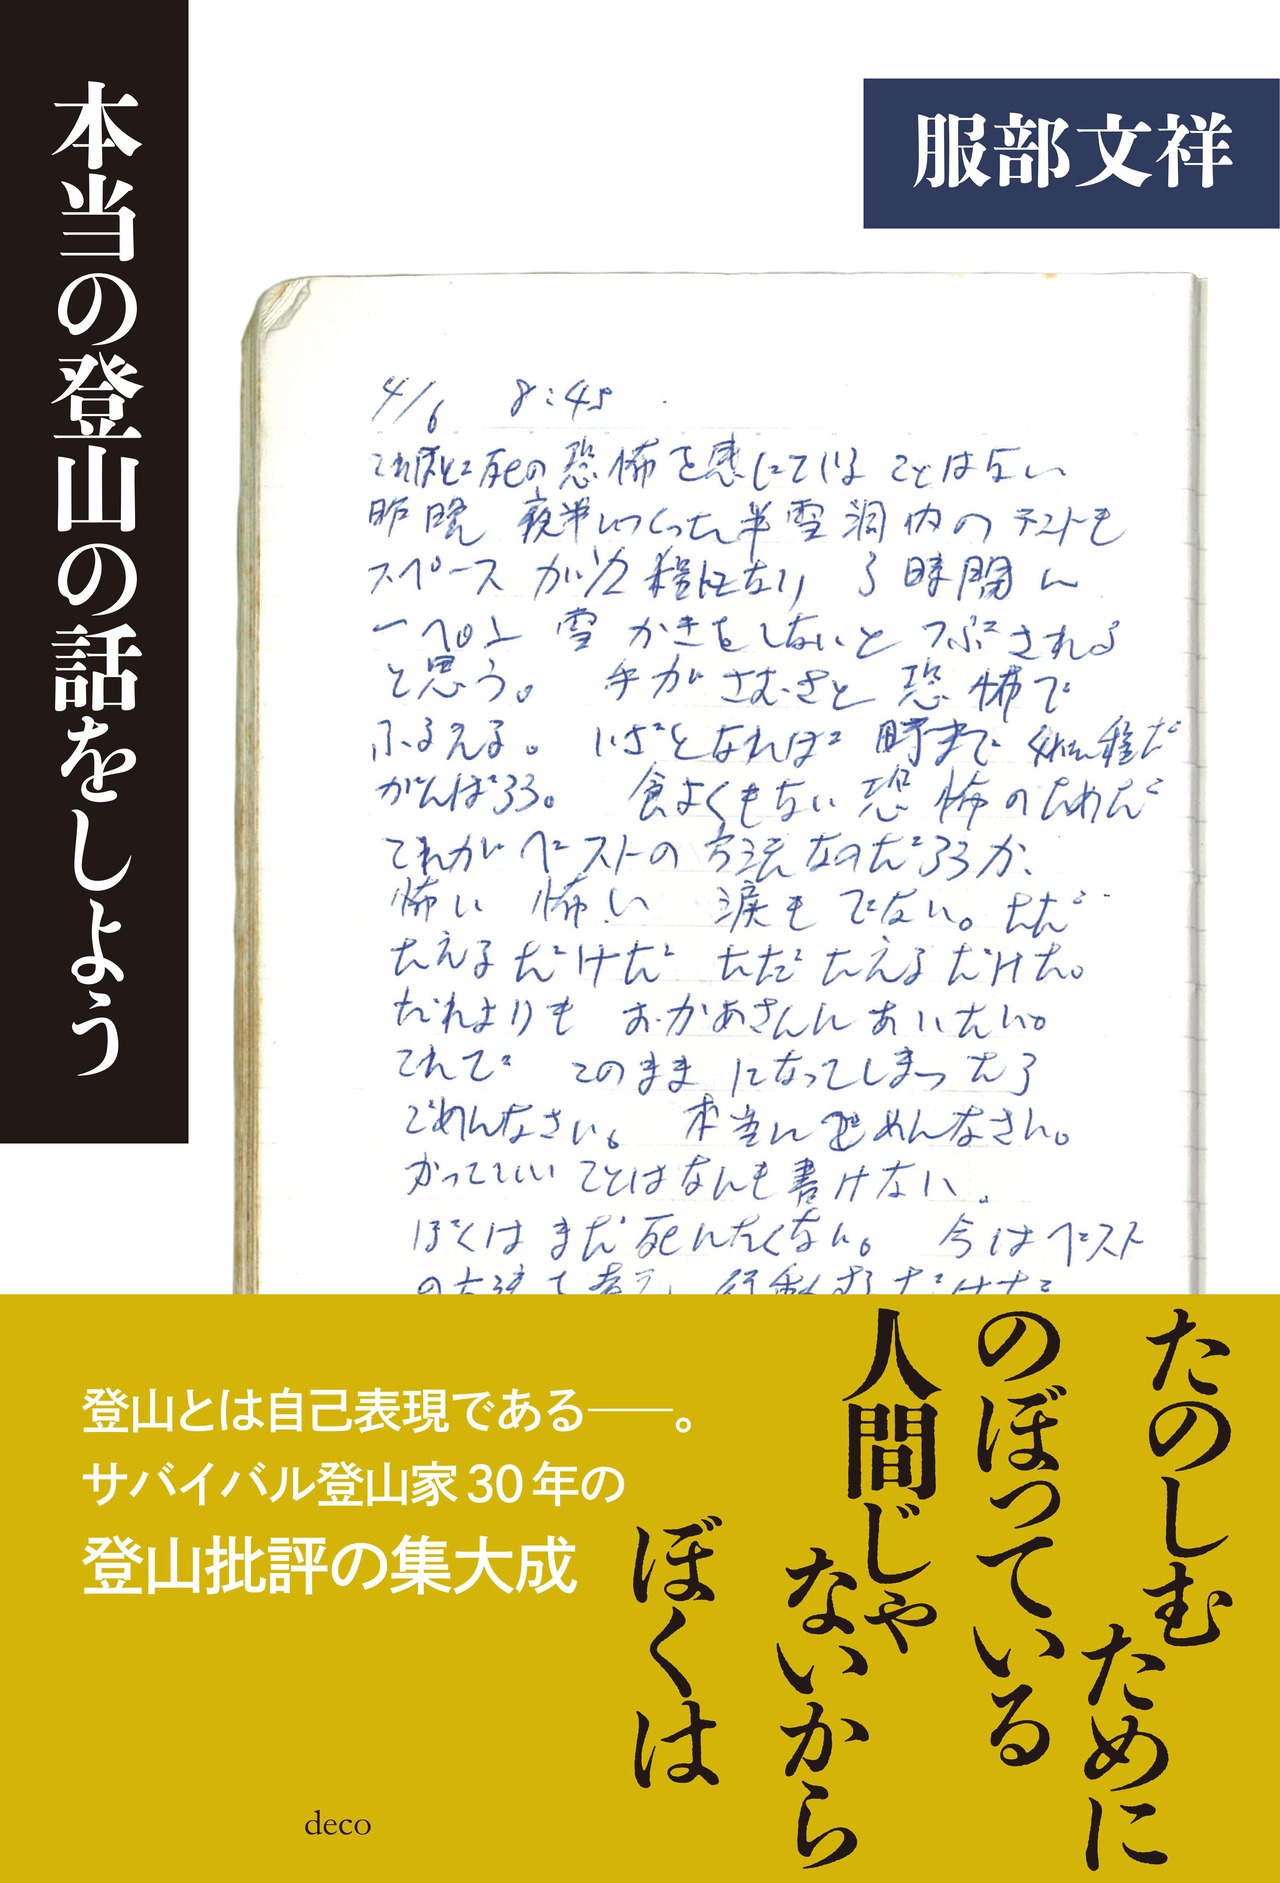 本当の登山の話をしよう
服部文祥
4/6 8:45
これほど死の恐怖を感じていることはない
昨晩 夜半につくった半雪洞内のテントも
スペースが 程になり 3時間に
一ぺん 雪かきをしないとつぶされる
と思う。 手がさむさと恐怖で
ふるえる。 いざとなれば 時まで
がんばろう。 食よくもない 恐怖のためだ
これがベストの方法なのだろうか、
怖い 怖い 涙もでない。ただ
たえるだけだ ただたえるだけだ。
だれよりも おかあさんにあいたい。
これで このままになってしまったら
ごめんなさい。 本当にごめんなさい。
かっていいことはなんも書けない。
ぼくはまだ死にたくない。 今はベスト
の方法を考え、行動するだけだ
たのしむために
のぼっている
人間じゃ
ないから
ぼくは
登山とは自己表現である――。
サバイバル登山家30年の
登山批評の集大成
deco